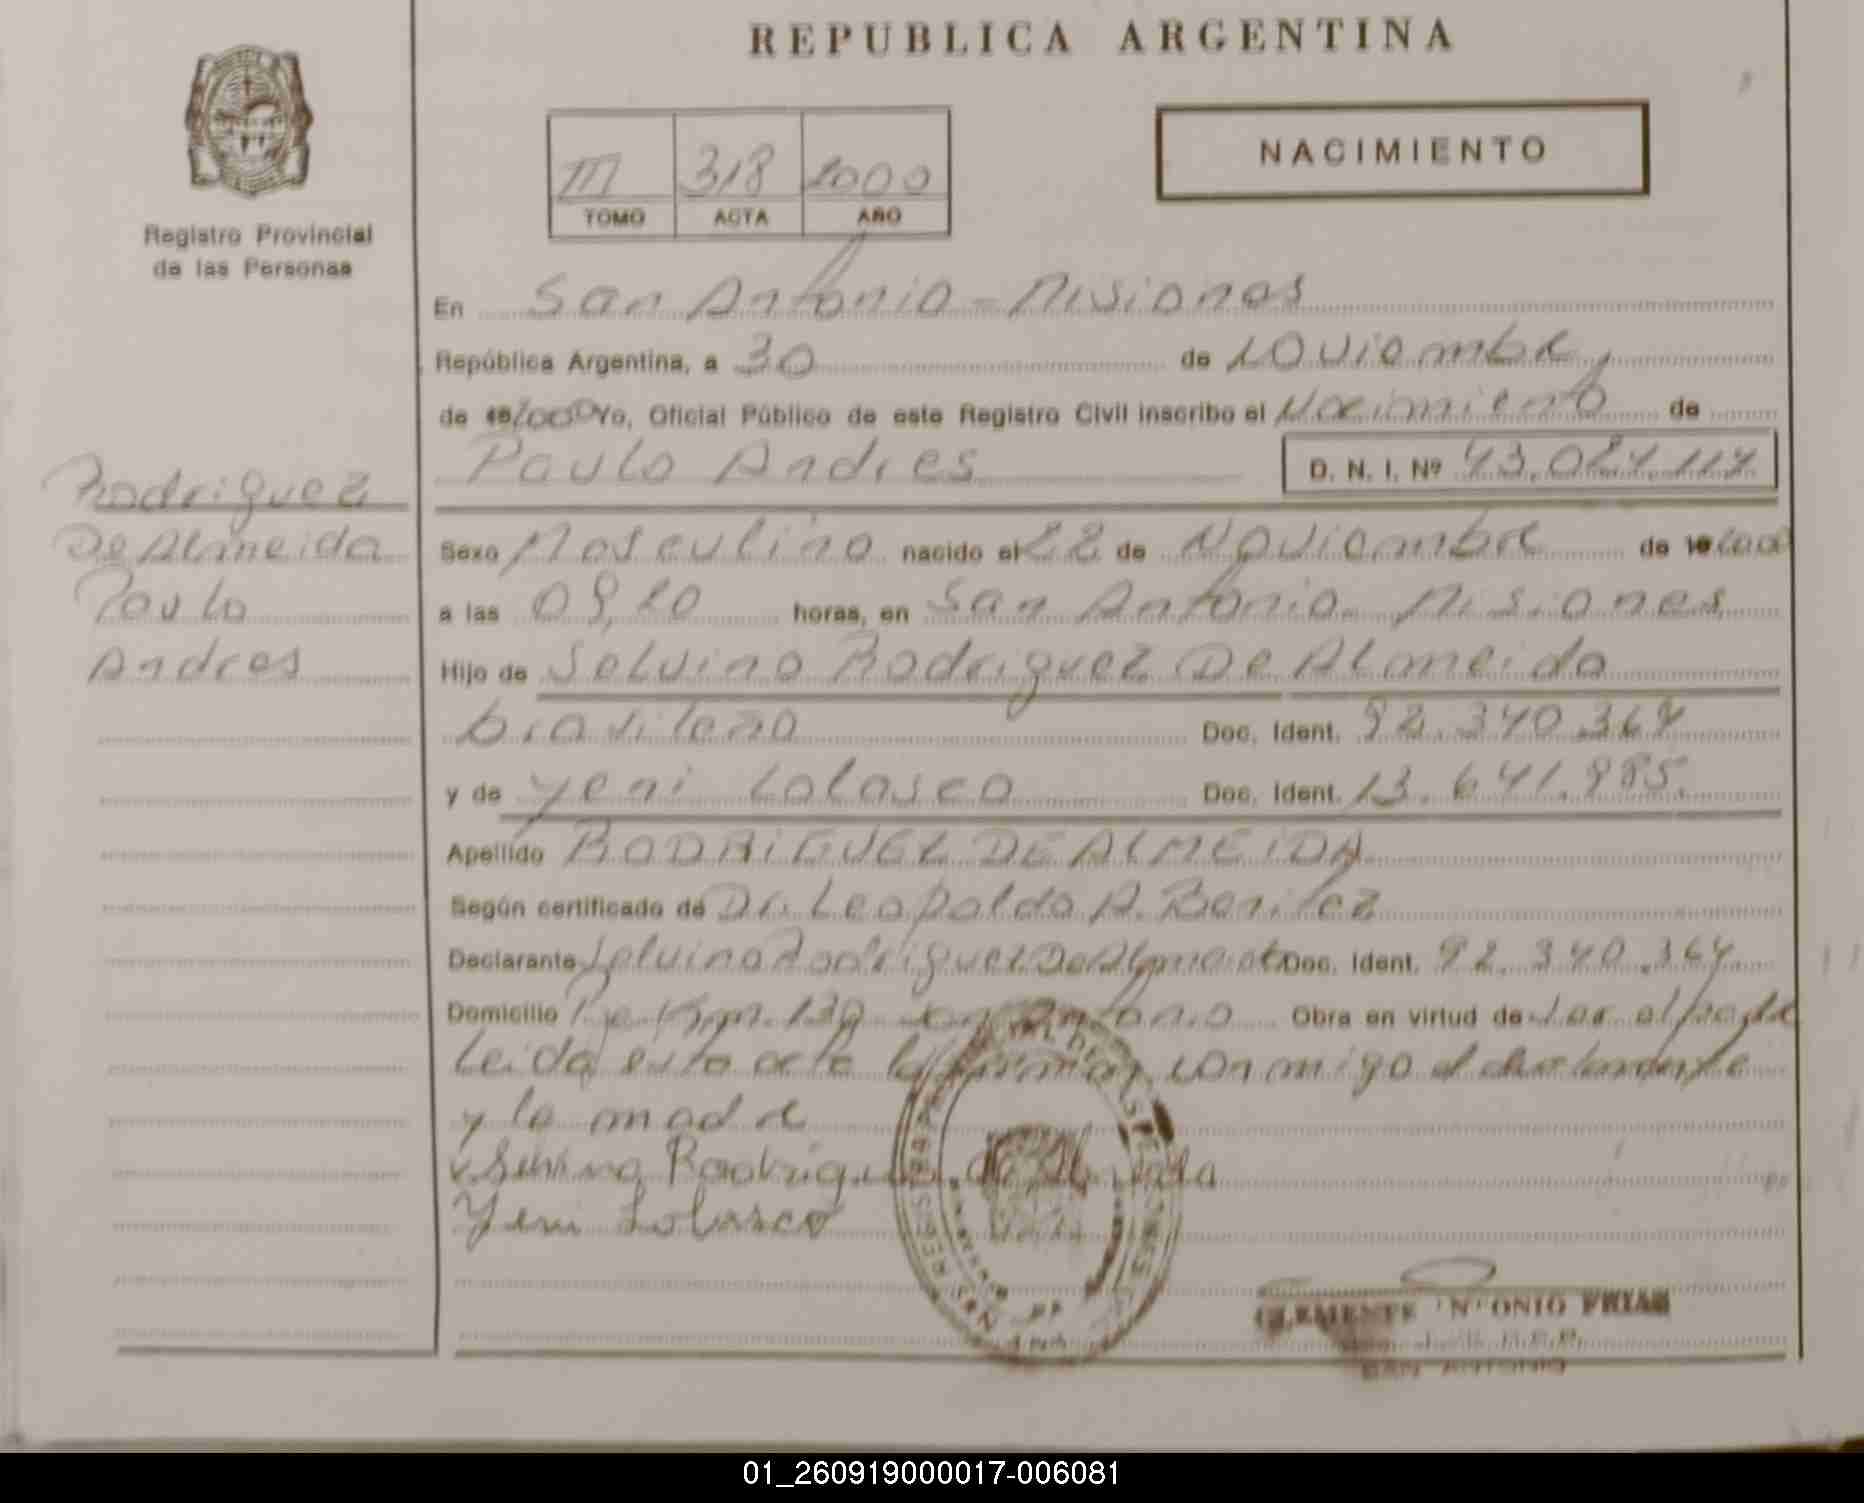 REPUBLICA ARGENTINA
NACIMIENTO
III 318 2000
TOMO ACTA AÑO
Registro Provincial
de las Personas
En San Antonio - Misiones
República Argentina, a 30 de Noviembre
de 2000 Yo, Oficial Público de este Registro Civil inscribo el Nacimiento de
Paulo Andres D. N. I. Nº
Rodriguez
De Almeida
Paulo
Andres
Sexo Masculino nacido el 22 de Noviembre de 2000
a las horas, en San Antonio Misiones
Hijo de Selvino Rodriguez De Almeida
brasileño Doc. Ident. 92.340.364
y de Yeni Lolasco Doc. Ident. 13.641.985.
Apellido RODRIGUEZ DE ALMEIDA
Según certificado de Dr. Leopoldo A. Benitez
Declarante Selvino Rodriguez De Almeida Doc. Ident. 92.340.364
Domicilio Km. 130 San Antonio Obra en virtud de
Leida esta acta la firman conmigo el declarante
y la madre
Selvino Rodriguez de Almeida
Yeni Lolasco
CLEMENTE ANTONIO FRIAS
SAN ANTONIO
01_260919000017-006081